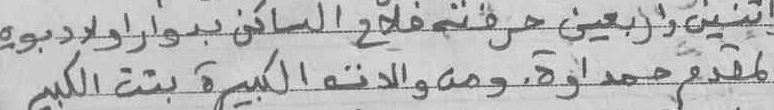 اثنين وأربعين حرفته فلاح الساكن بدوار اولاد دبويه
لمقدم حمداوة. ومن والدته الكبيرة بنت الكبير